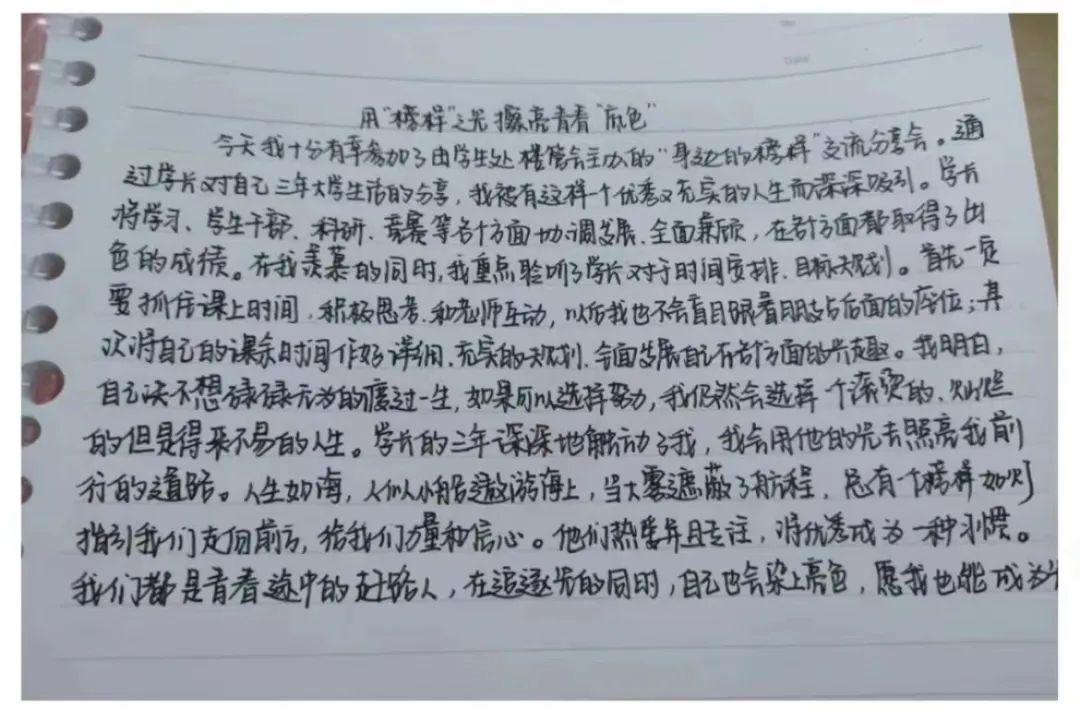 用“榜样”之光 擦亮青春“底色”
今天我十分有幸参加了由学生处楼管会主办的“身边的榜样”交流分享会。通
过学长对自己三年大学生活的分享，我被有这样一个优秀又充实的人生而深深吸引。学长
将学习、学生干部、科研、竞赛等各个方面协调发展、全面兼顾，在各个方面都取得了出
色的成绩。在我羡慕的同时，我重点聆听了学长对于时间安排、目标规划。首先一定
要抓住课上时间，积极思考、和老师互动，以后我也不会盲目跟着朋友占后面的座位；其
次将自己的课余时间作好详细、充实的规划、全面发展自己在各个方面的兴趣。我明白，
自己决不想碌碌无为的度过一生，如果可以选择努力，我仍然会选择一个滚烫的、灿烂
的但是得来不易的人生。学长的三年深深地触动了我，我会用他的光去照亮我前
行的道路。人生如海，人们从小船遨游海上，当大雾遮蔽了航程，总有一个榜样如灯
指引我们走向前方，给我们力量和信心。他们热爱并且专注，将优秀成为一种习惯。
我们都是青春途中的赶路人，在追逐光的同时，自己也会染上亮色，愿我也能成为